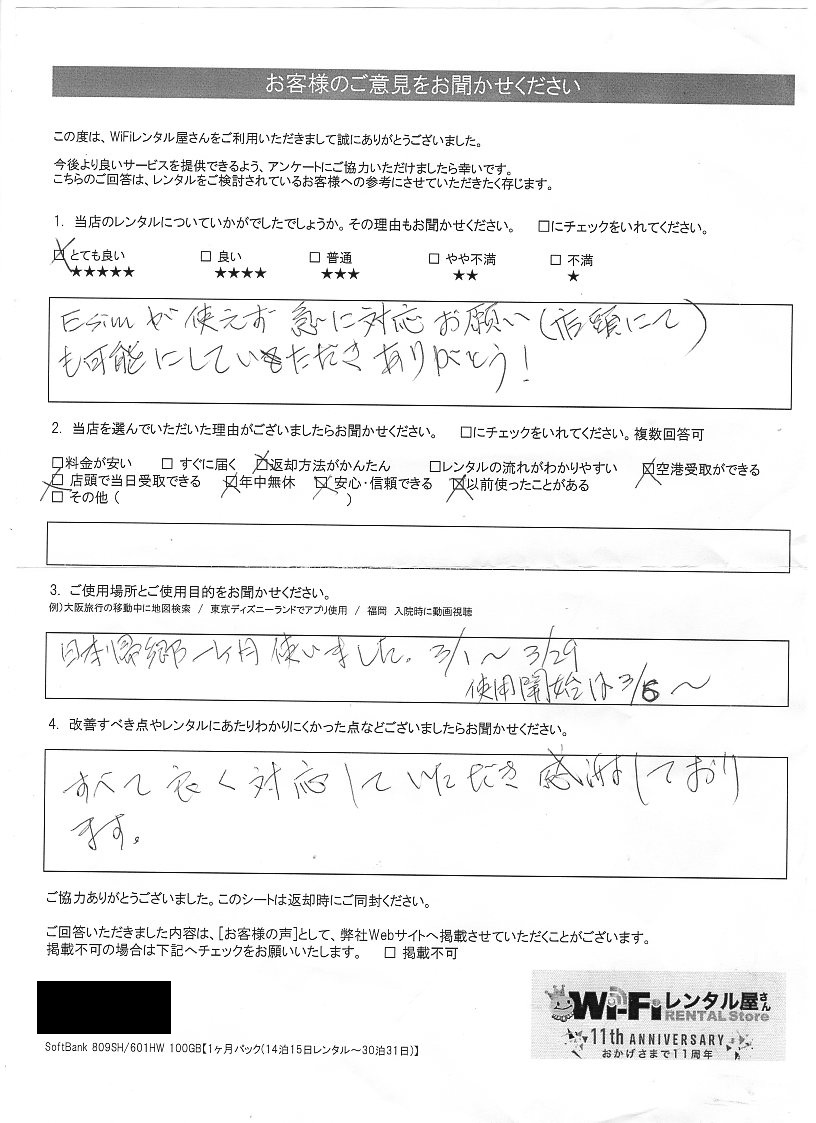 お客様のご意見をお聞かせください
この度は、WiFiレンタル屋さんをご利用いただきまして誠にありがとうございました。
今後より良いサービスを提供できるよう、アンケートにご協力いただけましたら幸いです。
こちらのご回答は、レンタルをご検討されているお客様への参考にさせていただきたく存じます。
1. 当店のレンタルについていかがでしたでしょうか。その理由もお聞かせください。 □にチェックをいれてください。
☒ とても良い □ 良い □ 普通 □ やや不満 □ 不満
★★★★★ ★★★★ ★★★ ★★ ★
Esimが使えず 急に対応お願い(店頭にて)
も可能にしていただきありがとう!
2. 当店を選んでいただいた理由がございましたらお聞かせください。 □にチェックをいれてください。複数回答可
□料金が安い □ すぐに届く ☒返却方法がかんたん □レンタルの流れがわかりやすい ☒空港受取ができる
☒ 店頭で当日受取できる ☒年中無休 ☒ 安心・信頼できる ☒以前使ったことがある
□ その他 ( )
3. ご使用場所とご使用目的をお聞かせください。
例)大阪旅行の移動中に地図検索 / 東京ディズニーランドでアプリ使用 / 福岡 入院時に動画視聴
日本帰郷一ヶ月使いました。3/1〜3/29
使用開始は3/5〜
4. 改善すべき点やレンタルにあたりわかりにくかった点などございましたらお聞かせください。
すべて良く対応していただき感謝しており
ます。
ご協力ありがとうございました。このシートは返却時にご同封ください。
ご回答いただきました内容は、[お客様の声]として、弊社Webサイトへ掲載させていただくことがございます。
掲載不可の場合は下記へチェックをお願いいたします。 □ 掲載不可
Wi-Fiレンタル屋さん
RENTAL Store
11th ANNIVERSARY
おかげさまで11周年
SoftBank 809SH/601HW 100GB【1ヶ月パック(14泊15日レンタル～30泊31日)】